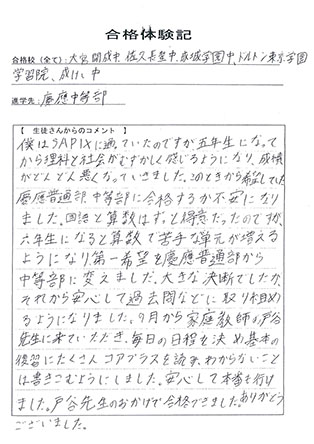 合格体験記
合格校(全て):大宮開成中、佐久長聖中、成城学園中、ドルトン東京学園
学習院、成けい中
進学先:慶應中等部
【 生徒さんからのコメント 】
僕はSAPIXに通っていたのですが五年生になって
から理科と社会がむずかしく感じるようになり、成績
がどんどん悪くなっていきました。このときから希望していた
慶應普通部、中等部に合格するか不安になり
ました。国語と算数はずっと得意だったのですが
六年生になると算数で苦手な単元が増える
ようになり第一希望を慶應普通部から
中等部に変えました。大きな決断でしたが
それから安心して過去問などに取り組め
るようになりました。9月から家庭教師の戸谷
先生に来ていただき、毎日の日程を決め基本の
復習にたくさんコアプラスを読み、わからないこと
は書きこむようにしました。安心して本番を行け
ました。戸谷先生のおかげで合格できました。ありがとう
ございました。